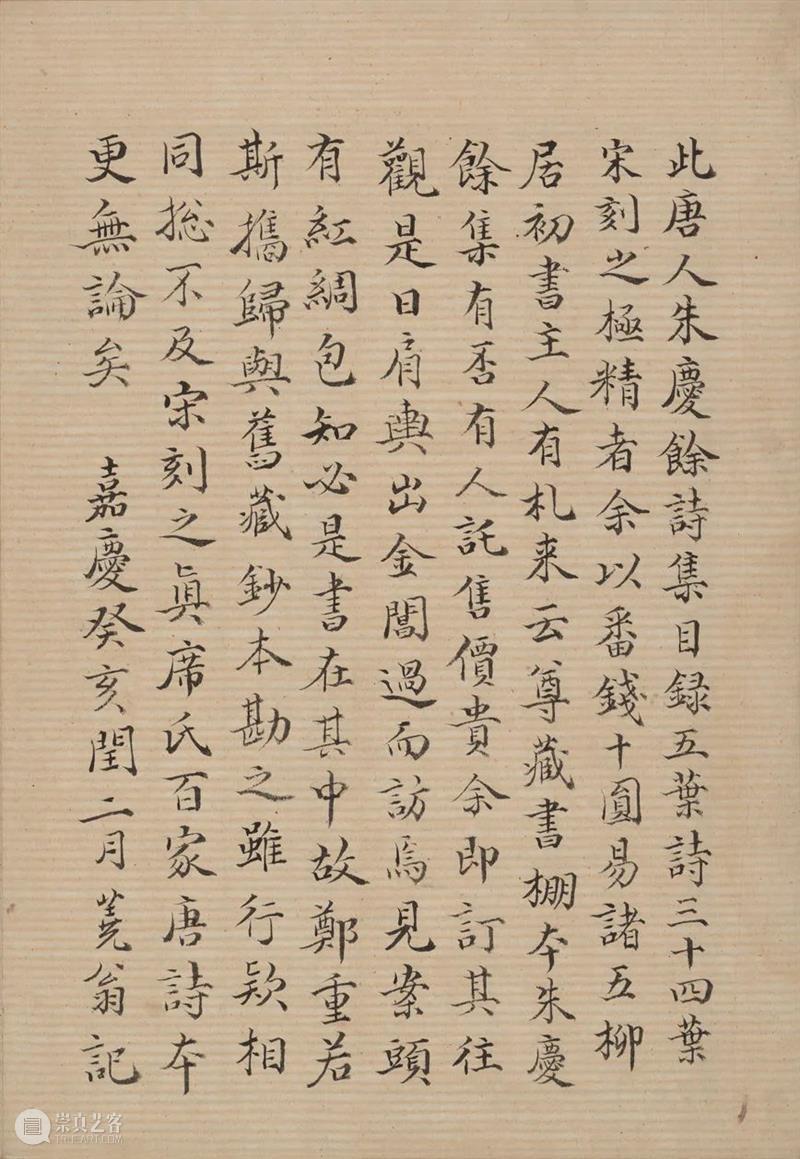 此唐人朱慶餘詩集目録五葉詩三十四葉
宋刻之極精者余以番錢十圓易諸五柳
居初書主人有札来云尊藏書棚本朱慶
餘集有否有人託售價貴余即訂其往
觀是日肩輿出金閶過而訪焉見案頭
有紅綢包知必是書在其中故鄭重若
斯攜歸與舊藏鈔本勘之雖行款相
同捴不及宋刻之眞席氏百家唐詩本
更無論矣 嘉慶癸亥閏二月蕘翁記
崇真艺客
TRUEART.COM